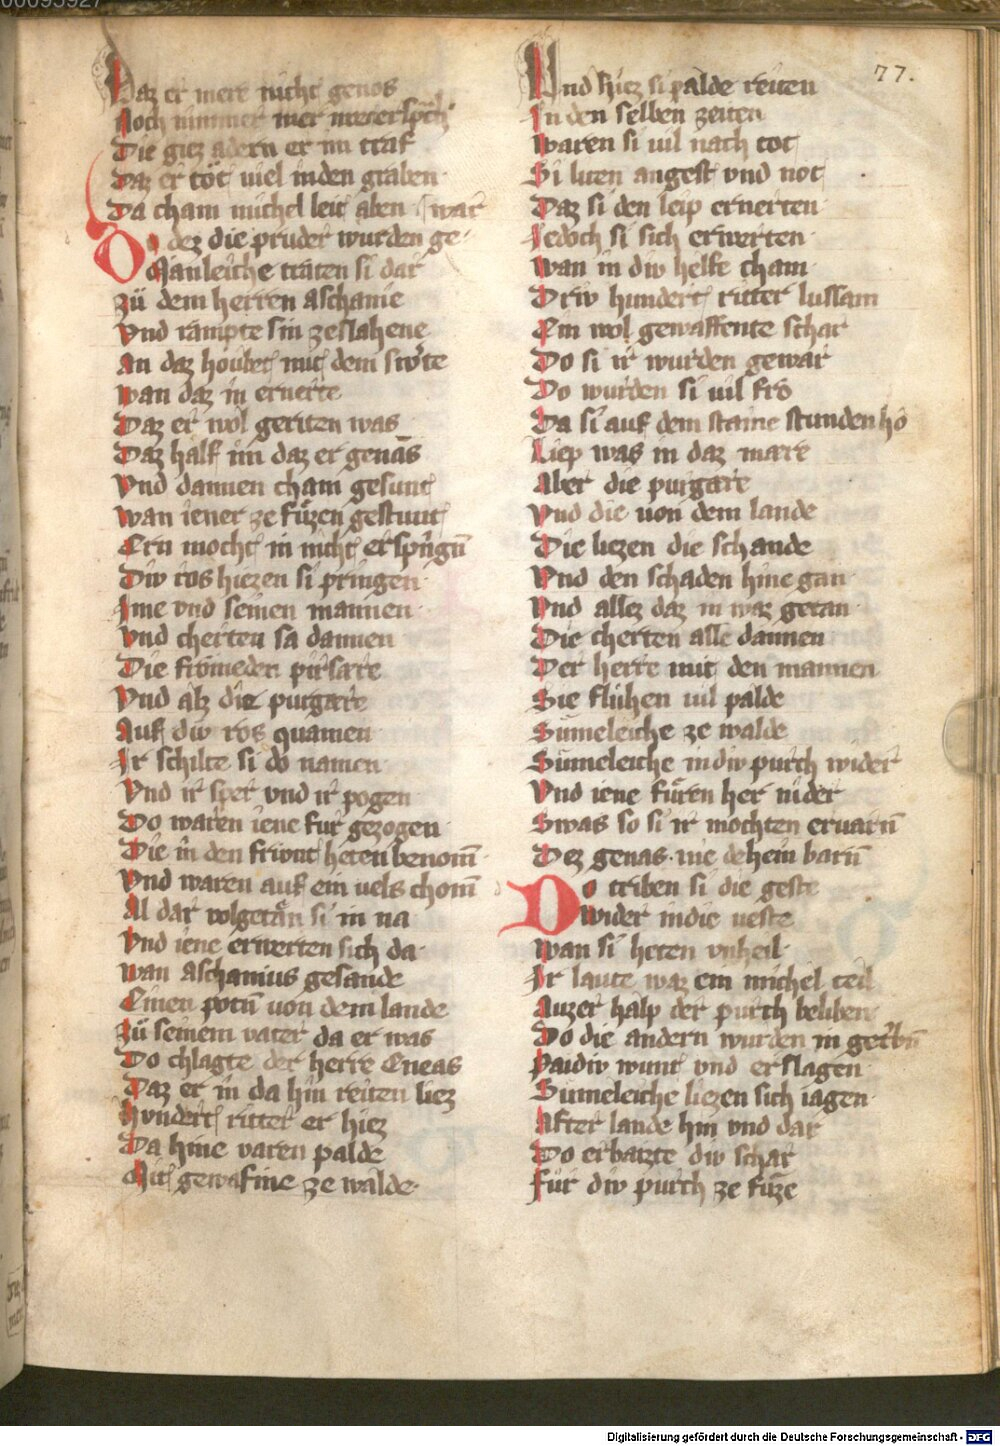 77.
Daz er mere nicht genos
Noch nimmer mer
Die giz adern er im traf
Daz er tot viel inden graben
Da cham michel leit aben
Do dez die pruder wurden gewar
Manleiche traten si dar
zů dem herren aschanie
Vnd rampte sin zeslahene
An daz houbet mit dem swͦte
wan daz in ernerte
Daz er wol geriten was
Daz half im daz er genas
Vnd dannen cham gesunt
wan iener ze fuͤzen gestunt
Ern mocht in nicht erspringn̄
Div ros hiezen si pringen
Ime vnd seinen mannen
vnd cherten sa dannen
Die frömeden pirsare
Vnd alz die purgare
Auf div ros quamen
Ir schilte si do namen
Vnd ir sper vnd ir pogen
Do waren iene fur gezogen
Die in den friunt heten benom̄
Vnd waren auf ein vels chom̄
Al dar volgeten si in na
Vnd iene erwerten sich da
wan aschanius gesande
Einen potn̄ von dem lande
zü seinem vater da er was
Do chlagte der herre Eneas
Daz er in da hin reiten liez
Hvndert ritter er hiez
Da hine varen palde
Mit gewafine ze walde
Vnd hiez si palde reiten
In den selben zeiten
waren si uil nach tot
Si liten angest vnd not
Daz si den leip ernerten
Iedoch si sich erwerten
wan in div helfe cham
Driv hundert ritter lussam
Ein wol gewaffente schar
Do si ir wurden gewar
Do wurden si uil fro
Da si auf dem staine stunden ho
Liep was in daz mare
Aber die purgare
Vnd die von dem lande
Die liezen die schande
Vnd den schaden hine gan
Vnd allez daz in waz getan
Die cherten alle dannen
Der herre mit den mannen
Sie fluhen uil palde
Sumeleiche ze walde
Sumeleiche indiv purch wider
Vnd iene füren her nider
Swas so si ir mochten eruarn̄
Dez genas nie dehein barn̄
Do triben si die geste
wider indie ueste
wan si heten vnheil
Ir laute waz ein michel teil
Auzer halp der purch beliben
Do die andern wurden in getbn̄
Paidiv wunt vnd erslagen
Sumeleiche liezen sich iagen
After lande hin vnd dar
Do erbaizte div schar
Fur div purch ze fuze
Digitalisierung gefördert durch die Deutsche Forschungsgemeinschaft - DFG